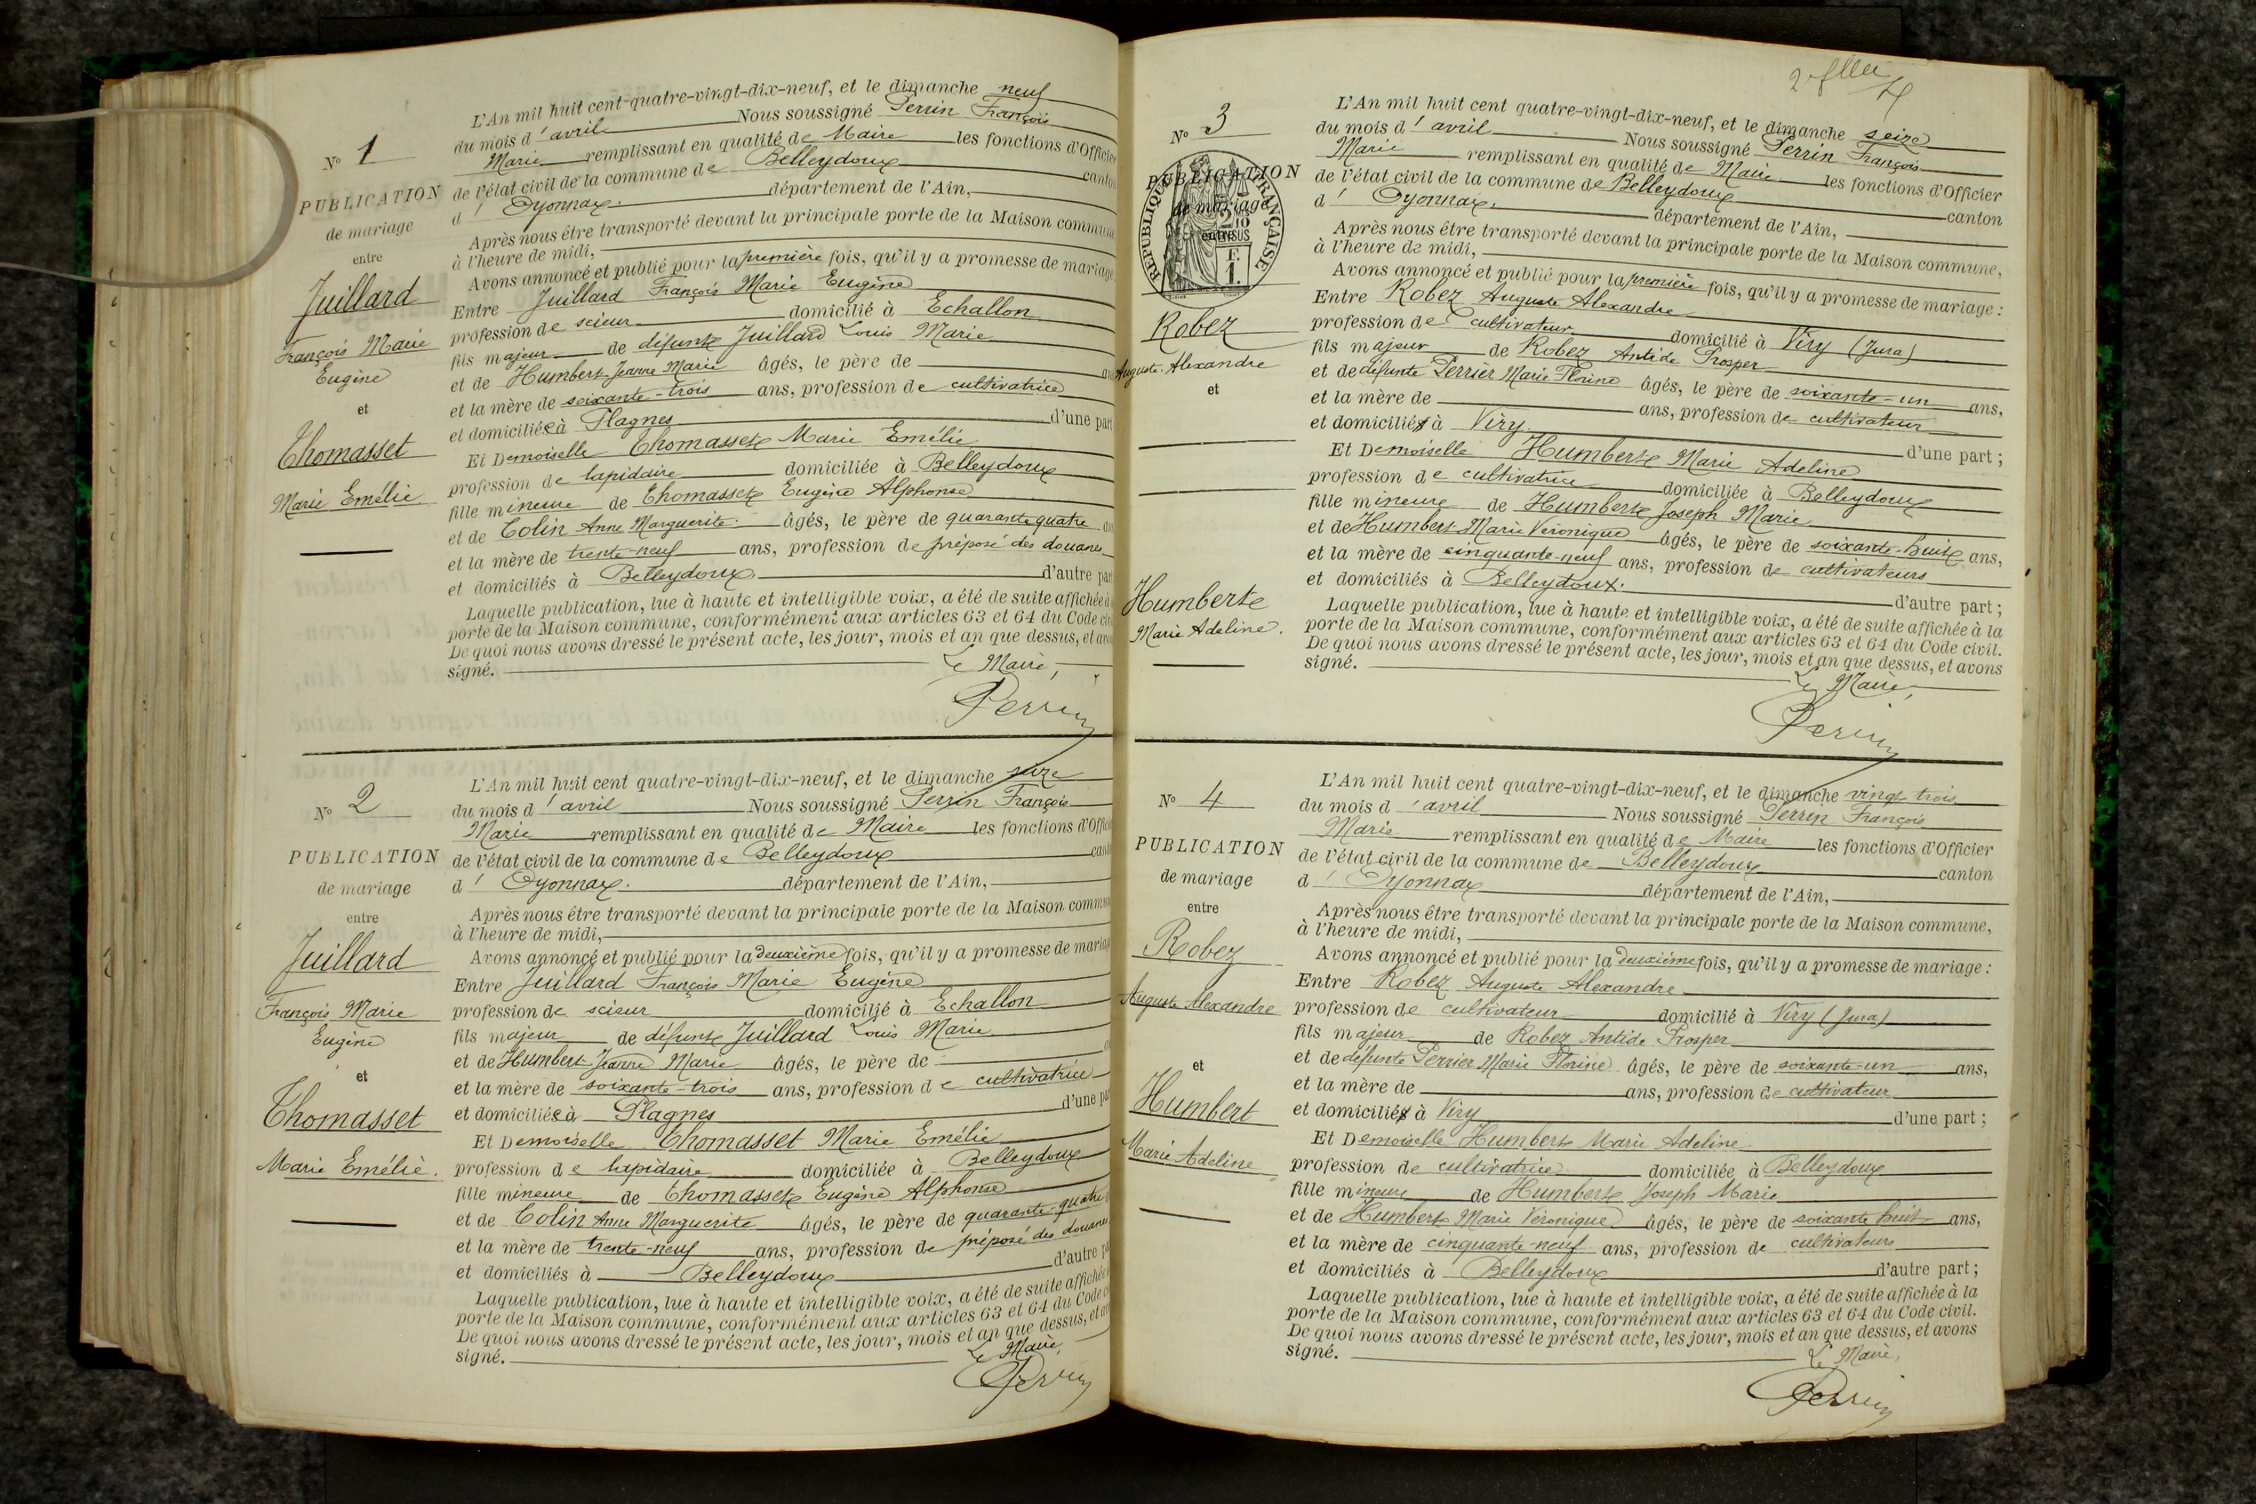 N° 1
PUBLICATION
de mariage
entre
Juillard
François Marie
Eugène
et
Thomasset
Marie Emélie
L'An mil huit cent quatre-vingt-dix-neuf, et le dimanche neuf
du mois d'avril Nous soussigné Perrin François
Marie remplissant en qualité de Maire les fonctions d'Officier
de l'état civil de la commune de Belleydoux canton
d'Oyonnax. département de l'Ain,
Après nous être transporté devant la principale porte de la Maison commune
à l'heure de midi,
Avons annoncé et publié pour la première fois, qu'il y a promesse de mariage
Entre Juillard François Marie Eugène
profession de scieur domicilié à Echallon
fils majeur de défunt Juillard Louis Marie
et de Humbert Jeanne Marie âgés, le père de
et la mère de soixante-trois ans, profession de cultivatrice
et domiciliée à Plagnes d'une part
Et Demoiselle Thomasset Marie Emélie
profession de lapidaire domiciliée à Belleydoux
fille mineure de Thomasset Eugène Alphonse
et de Colin Anne Marguerite âgés, le père de quarante quatre
et la mère de trente-neuf ans, profession de préposé des douanes
et domiciliés à Belleydoux. d'autre part
Laquelle publication, lue à haute et intelligible voix, a été de suite affichée à
porte de la Maison commune, conformément aux articles 63 et 64 du Code
De quoi nous avons dressé le présent acte, les jour, mois et an que dessus, et
signé.
Le Maire,
Perrin
N° 2
PUBLICATION
de mariage
entre
Juillard
François Marie
Eugène
et
Thomasset
Marie Emélie.
L'An mil huit cent quatre-vingt-dix-neuf, et le dimanche seize
du mois d'avril Nous soussigné Perrin François
Marie remplissant en qualité de Maire les fonctions d'Officier
de l'état civil de la commune de Belleydoux canton
d'Oyonnax. département de l'Ain,
Après nous être transporté devant la principale porte de la Maison commune
à l'heure de midi,
Avons annoncé et publié pour la deuxième fois, qu'il y a promesse de mariage
Entre Juillard François Marie Eugène
profession de scieur domicilié à Echallon
fils majeur de défunt Juillard Louis Marie
et de Humbert Jeanne Marie âgés, le père de
et la mère de soixante-trois ans, profession de cultivatrice
et domiciliée à Plagnes d'une part
Et Demoiselle Thomasset Marie Emélie
profession de lapidaire domiciliée à Belleydoux
fille mineure de Thomasset Eugène Alphonse
et de Colin Anne Marguerite âgés, le père de quarante-quatre
et la mère de trente-neuf ans, profession de préposé des douanes
et domiciliés à Belleydoux d'autre
Laquelle publication, lue à haute et intelligible voix, a été de suite affichée
porte de la Maison commune, conformément aux articles 63 et 64 du Code
De quoi nous avons dressé le présent acte, les jour, mois et an que dessus, et
signé.
Le Maire,
Perrin
N° 3
PUBLICATION
de mariage
entre
RÉPUBLIQUE FRANÇAISE
Robez
Auguste Alexandre
et
Humbert
Marie Adeline.
L'An mil huit cent quatre-vingt-dix-neuf, et le dimanche seize
du mois d'avril Nous soussigné Perrin François
Marie remplissant en qualité de Maire les fonctions d'Officier
de l'état civil de la commune de Belleydoux canton
d'Oyonnax. département de l'Ain,
Après nous être transporté devant la principale porte de la Maison commune,
à l'heure de midi,
Avons annoncé et publié pour la première fois, qu'il y a promesse de mariage :
Entre Robez Auguste Alexandre
profession de cultivateur domicilié à Viry (Jura)
fils majeur de Robez Antide Prosper
et de défunte Perrier Marie Florine âgés, le père de soixante-un ans,
et la mère de ans, profession de cultivateur
et domicilié à Viry d'une part ;
Et Demoiselle Humbert Marie Adeline
profession de cultivatrice domiciliée à Belleydoux
fille mineure de Humbert Joseph Marie
et de Humbert Marie Véronique âgés, le père de soixante-huit ans,
et la mère de cinquante-neuf ans, profession de cultivateurs
et domiciliés à Belleydoux. d'autre part ;
Laquelle publication, lue à haute et intelligible voix, a été de suite affichée à la
porte de la Maison commune, conformément aux articles 63 et 64 du Code civil.
De quoi nous avons dressé le présent acte, les jour, mois et an que dessus, et avons
signé.
Le Maire,
Perrin
N° 4
PUBLICATION
de mariage
entre
Robez
Auguste Alexandre
et
Humbert
Marie Adeline
L'An mil huit cent quatre-vingt-dix-neuf, et le dimanche vingt trois
du mois d'avril Nous soussigné Perrin François
Marie remplissant en qualité de Maire les fonctions d'Officier
de l'état civil de la commune de Belleydoux canton
d'Oyonnax département de l'Ain,
Après nous être transporté devant la principale porte de la Maison commune,
à l'heure de midi,
Avons annoncé et publié pour la deuxième fois, qu'il y a promesse de mariage :
Entre Robez Auguste Alexandre
profession de cultivateur domicilié à Viry (Jura)
fils majeur de Robez Antide Prosper
et de défunte Perrier Marie Florine âgés, le père de soixante-un ans,
et la mère de ans, profession de cultivateur
et domicilié à Viry d'une part ;
Et Demoiselle Humbert Marie Adeline
profession de cultivatrice domiciliée à Belleydoux
fille mineure de Humbert Joseph Marie
et de Humbert Marie Véronique âgés, le père de soixante huit ans,
et la mère de cinquante-neuf ans, profession de cultivateurs
et domiciliés à Belleydoux d'autre part ;
Laquelle publication, lue à haute et intelligible voix, a été de suite affichée à la
porte de la Maison commune, conformément aux articles 63 et 64 du Code civil.
De quoi nous avons dressé le présent acte, les jour, mois et an que dessus, et avons
signé.
Le Maire,
Perrin